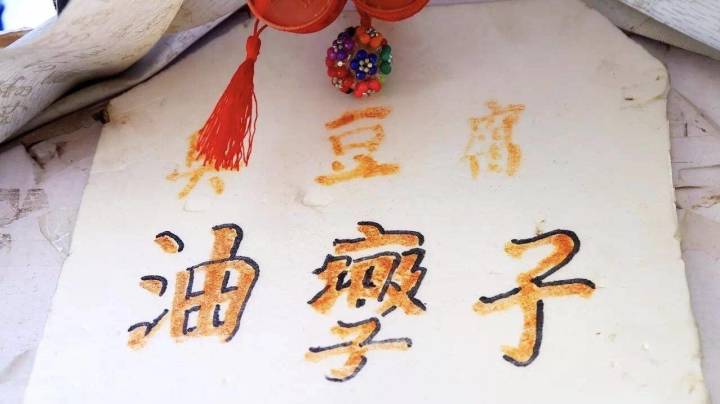 臭豆腐
油孿子